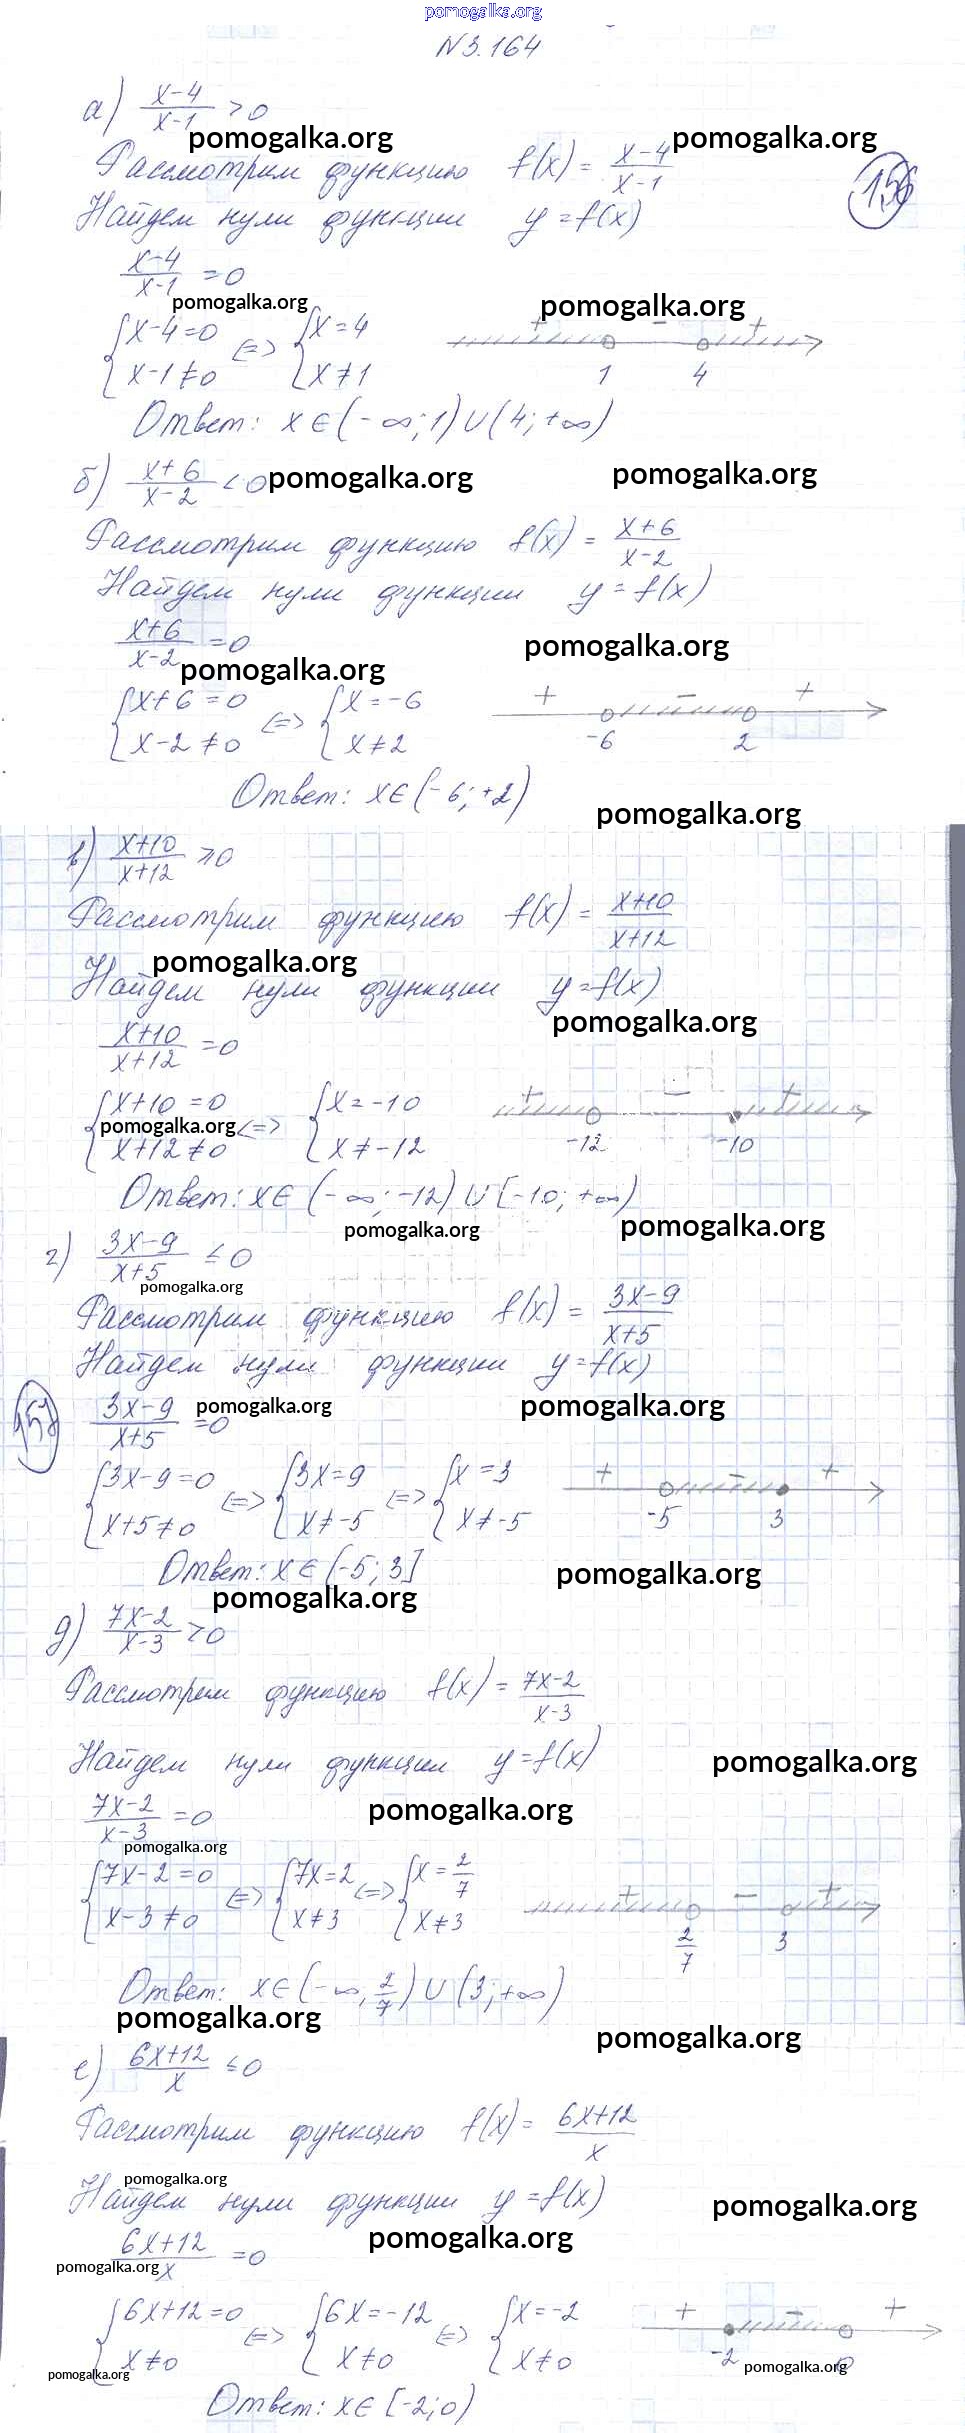 pomogalka.org
N 3.164
а) (x-4)/(x-1) > 0
pomogalka.org pomogalka.org
Рассмотрим функцию f(x) = (x-4)/(x-1)
156
Найдем нули функции y = f(x)
(x-4)/(x-1) = 0
pomogalka.org pomogalka.org
{x-4=0 {x=4 + - +
<=>
{x-1≠0 {x≠1 1 4
Ответ: x∈(-∞;1)∪(4;+∞)
б) (x+6)/(x-2) < 0 pomogalka.org pomogalka.org
Рассмотрим функцию f(x) = (x+6)/(x-2)
Найдем нули функции y = f(x)
(x+6)/(x-2) = 0
pomogalka.org pomogalka.org
{x+6=0 {x=-6 + - +
<=>
{x-2≠0 {x≠2 -6 2
Ответ: x∈(-6;+2)
pomogalka.org
в) (x+10)/(x+12) ≥ 0
Рассмотрим функцию f(x) = (x+10)/(x+12)
pomogalka.org
Найдем нули функции y = f(x)
pomogalka.org
(x+10)/(x+12) = 0
{x+10=0 {x=-10 + - +
pomogalka.org <=>
{x+12≠0 {x≠-12 -12 -10
Ответ: x∈(-∞;-12)∪[-10;+∞)
pomogalka.org pomogalka.org
г) (3x-9)/(x+5) ≤ 0
pomogalka.org
Рассмотрим функцию f(x) = (3x-9)/(x+5)
Найдем нули функции y = f(x)
(3x-9)/(x+5) = 0 pomogalka.org pomogalka.org
{3x-9=0 {3x=9 {x=3 + - +
<=> <=>
{x+5≠0 {x≠-5 {x≠-5 -5 3
Ответ: x∈(-5;3]
pomogalka.org pomogalka.org
д) (7x-2)/(x-3) > 0
Рассмотрим функцию f(x) = (7x-2)/(x-3)
Найдем нули функции y = f(x)
pomogalka.org
(7x-2)/(x-3) = 0 pomogalka.org
pomogalka.org
{7x-2=0 {7x=2 {x=2/7 + - +
<=> <=>
{x-3≠0 {x≠3 {x≠3 2/7 3
Ответ: x∈(-∞,2/7)∪(3;+∞)
pomogalka.org pomogalka.org
е) (6x+12)/x ≤ 0
Рассмотрим функцию f(x) = (6x+12)/x
pomogalka.org
Найдем нули функции y = f(x)
pomogalka.org
(6x+12)/x = 0 pomogalka.org
pomogalka.org
{6x+12=0 {6x=-12 {x=-2 + - +
<=> <=>
{x≠0 {x≠0 {x≠0 -2 0
pomogalka.org pomogalka.org
Ответ: x∈[-2;0)